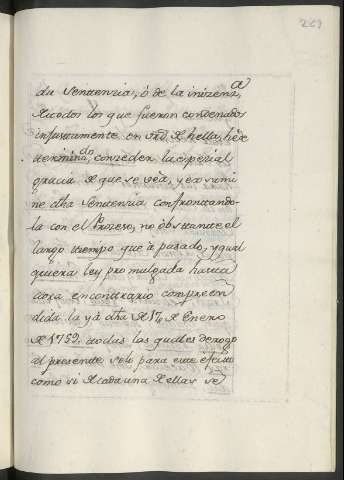 269
du Sentenzia, ò de la inozenz.a
de todos los que fueron condenados
injustamente en vrd. de hella, hè
determindo. conzeder la especial
gracia de que se vea, y exami
ne dha Sentenzia confrontando-
la con el Prozeso, no obstante el
largo tiempo que à pasado, y qual
quiera ley promulgada hasta
aora encontrario comprehen
dida la yà dha de 17,, de Enero
de 1759. todas las quales derogo
al presente solo para este efecto
como si de cada una de ellas se